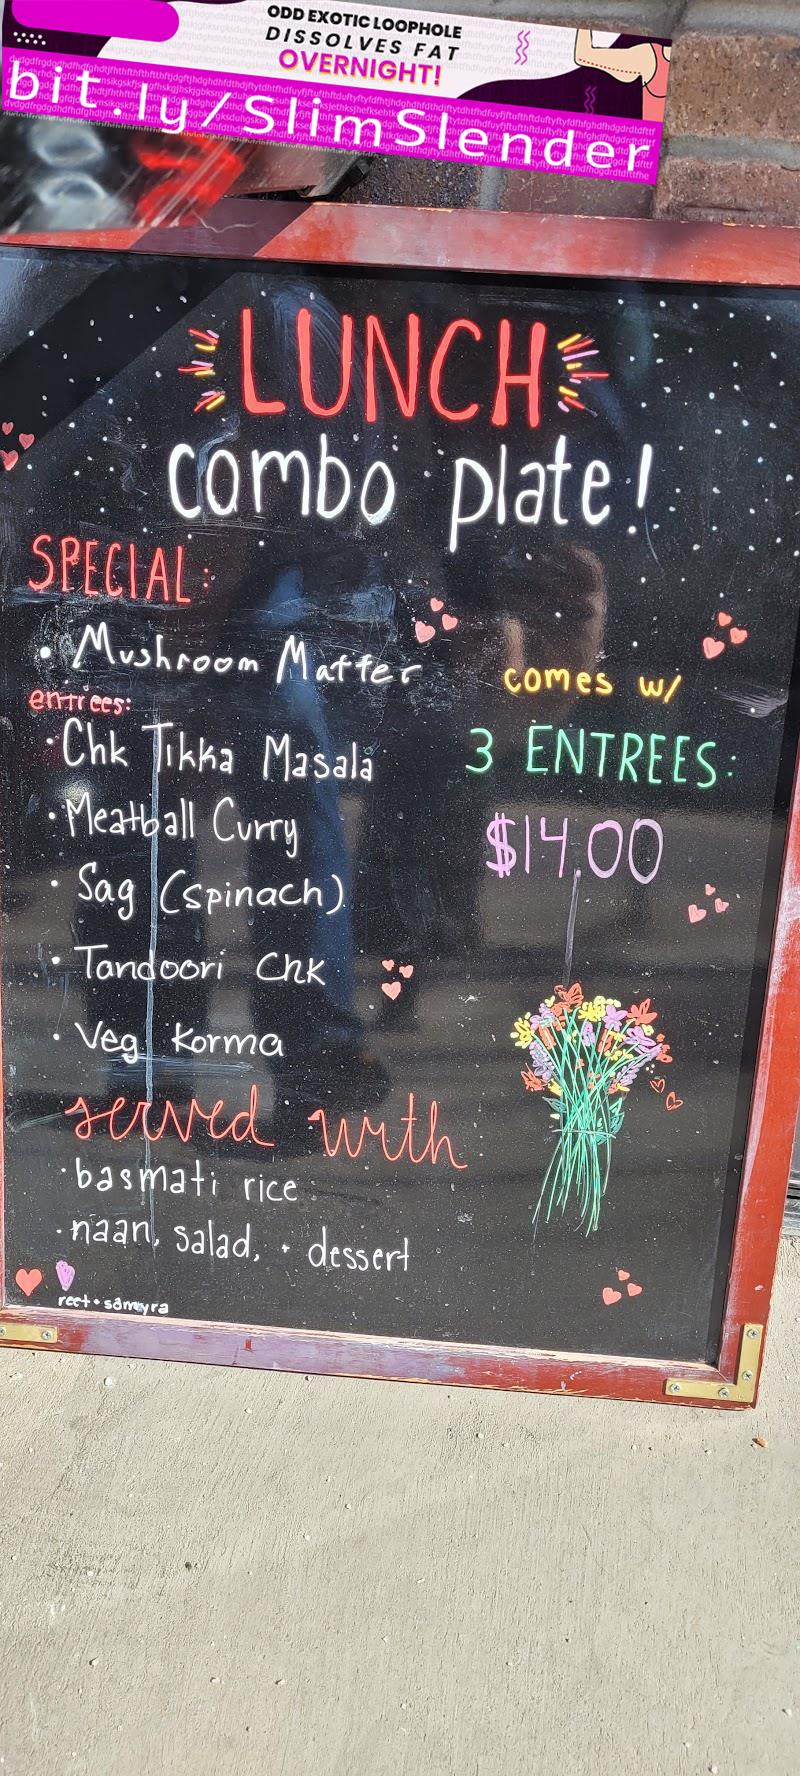 ODD EXOTIC LOOPHOLE
DISSOLVES FAT
OVERNIGHT!
bit.ly/SlimSlender
LUNCH
combo plate!
SPECIAL:
• Mushroom Matter
entrees:
• Chk Tikka Masala
• Meatball Curry
• Sag (spinach)
• Tandoori Chk
• Veg Korma
comes w/
3 ENTREES:
$14.00
served with
• basmati rice
• naan, salad, + dessert
reet + samyra